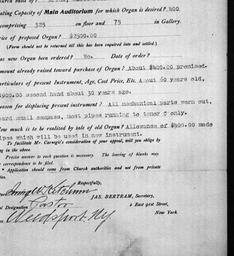 ating Capacity of Main Auditorium for which Organ is desired? 400
omprising 325 on floor and 75 in Gallery.
rice of proposed Organ? $2500.00
(Form should not be returned till this has been required into and settled)
as new Organ been ordered? No. Date
mount already raised toward purchase of Organ? About $400.00 promised.
articulars of present Instrument, Age, Cost Price, Etc. About 60 years old,
$900.00 second hand about 30 years ago.
eason for displacing present instrument? All mechanical parts worn out,
board small compass, most pipes running to tenor C only.
ow much is to be realized by sale of old Organ? Allowance of $500.00 made
ipes which will be used in new instrument.
To facilitate Mr. Carnegie's consideration for your appeal, will you oblige by
ing in the above.
Precise answer to each question is necessary. The leaving of blanks may
correspondence to be filed.
Application should come from Church authorities and not from private
iduals.
Respectfully,
JAS. BERTRAM, Secretary,
2 East 91st Street,
Designation Pastor
New York
Weedsport, N.Y.